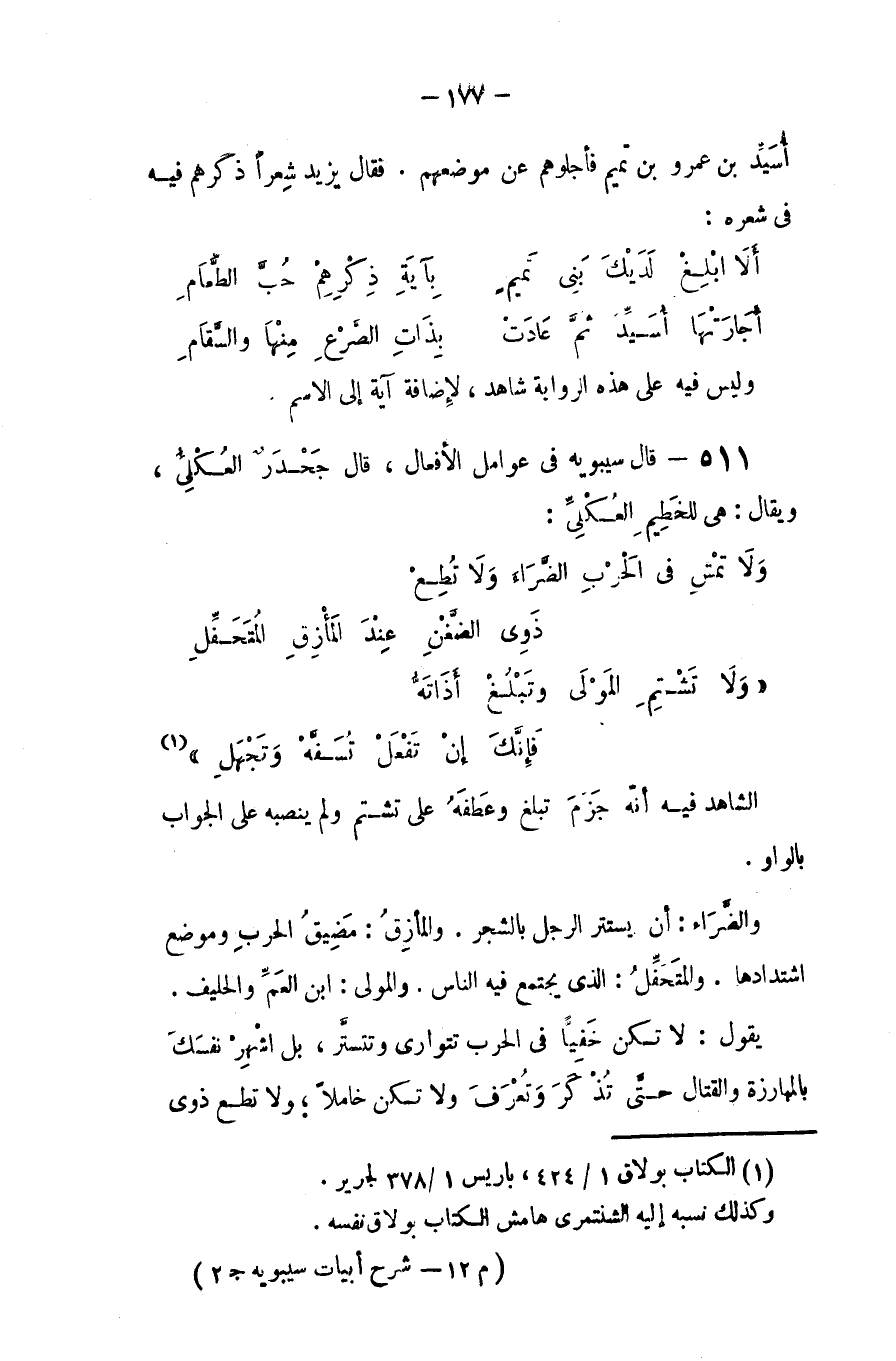 — ١٧٧ —
أُسَيِّد بن عمرو بن تميم فأجلوهم عن موضعهم . فقال يزيد شِعراً ذكرهم فيــه
فى شعره :
أَلَا ابْلِغْ لَدَيْكَ بَنِى تَميمٍ بِآيَةِ ذِكْرِهِمْ حُبَّ الطَّعَامِ
أجَارَتْهَا أُسَيِّدُ ثُمَّ عَادَتْ بِذَاتِ الضَّرْعِ مِنْهَا والسَّقَامِ
وليس فيه على هذه الرواية شاهد ، لإِضافة آية إلى الاسم .
٥١١ — قال سيبويه فى عوامل الأفعال ، قال جَحْدَرٌ العُكْلِىُّ ،
ويقال : هى للخَطِيمِ العُكْلِىِّ :
وَلَا تَمْشِ فى الْحَرْبِ الضَّرَاءَ وَلَا تُطِعْ
ذَوِى الضَّغْنِ عِنْدَ الْمَأْزِقِ الْمُتَحَفِّلِ
« وَلَا تَشْتِمِ الْمَوْلَى وتَبْلُغْ أَذَاتَهُ
فَإِنَّكَ إِنْ تَفْعَلْ تُسَفَّهْ وَتَجْهَلِ »(١)
الشاهد فيه أنّه جَزَمَ تبلغ وعَطفَهُ على تشتم ولم ينصبه على الجواب
بالواو .
والضَّرَاء : أن يستتر الرجل بالشجر . والمأزِقُ : مَضِيقُ الحربِ وموضع
اشتدادها . والمتَحَفِّلُ : الذى يجتمع فيه الناس . والمولى : ابن العَمِّ والحليف .
يقول : لا تكن خَفِيًّا فى الحرب تتوارى وتتستَّر ، بل اشْهِرْ نفسَكَ
بالمبارزة والقتال حتَّى تُذْكَرَ وَتُعْرَفَ ولا تكن خاملاً ؛ ولا تطع ذوى
(١) الكتاب بولاق ١ / ٤٢٤ ، باريس ١ / ٣٧٨ لجرير .
وكذلك نسبه إليه الشنتمرى هامش الكتاب بولاق نفسه .
( م ١٢ — شرح أبيات سيبويه ج ٢ )